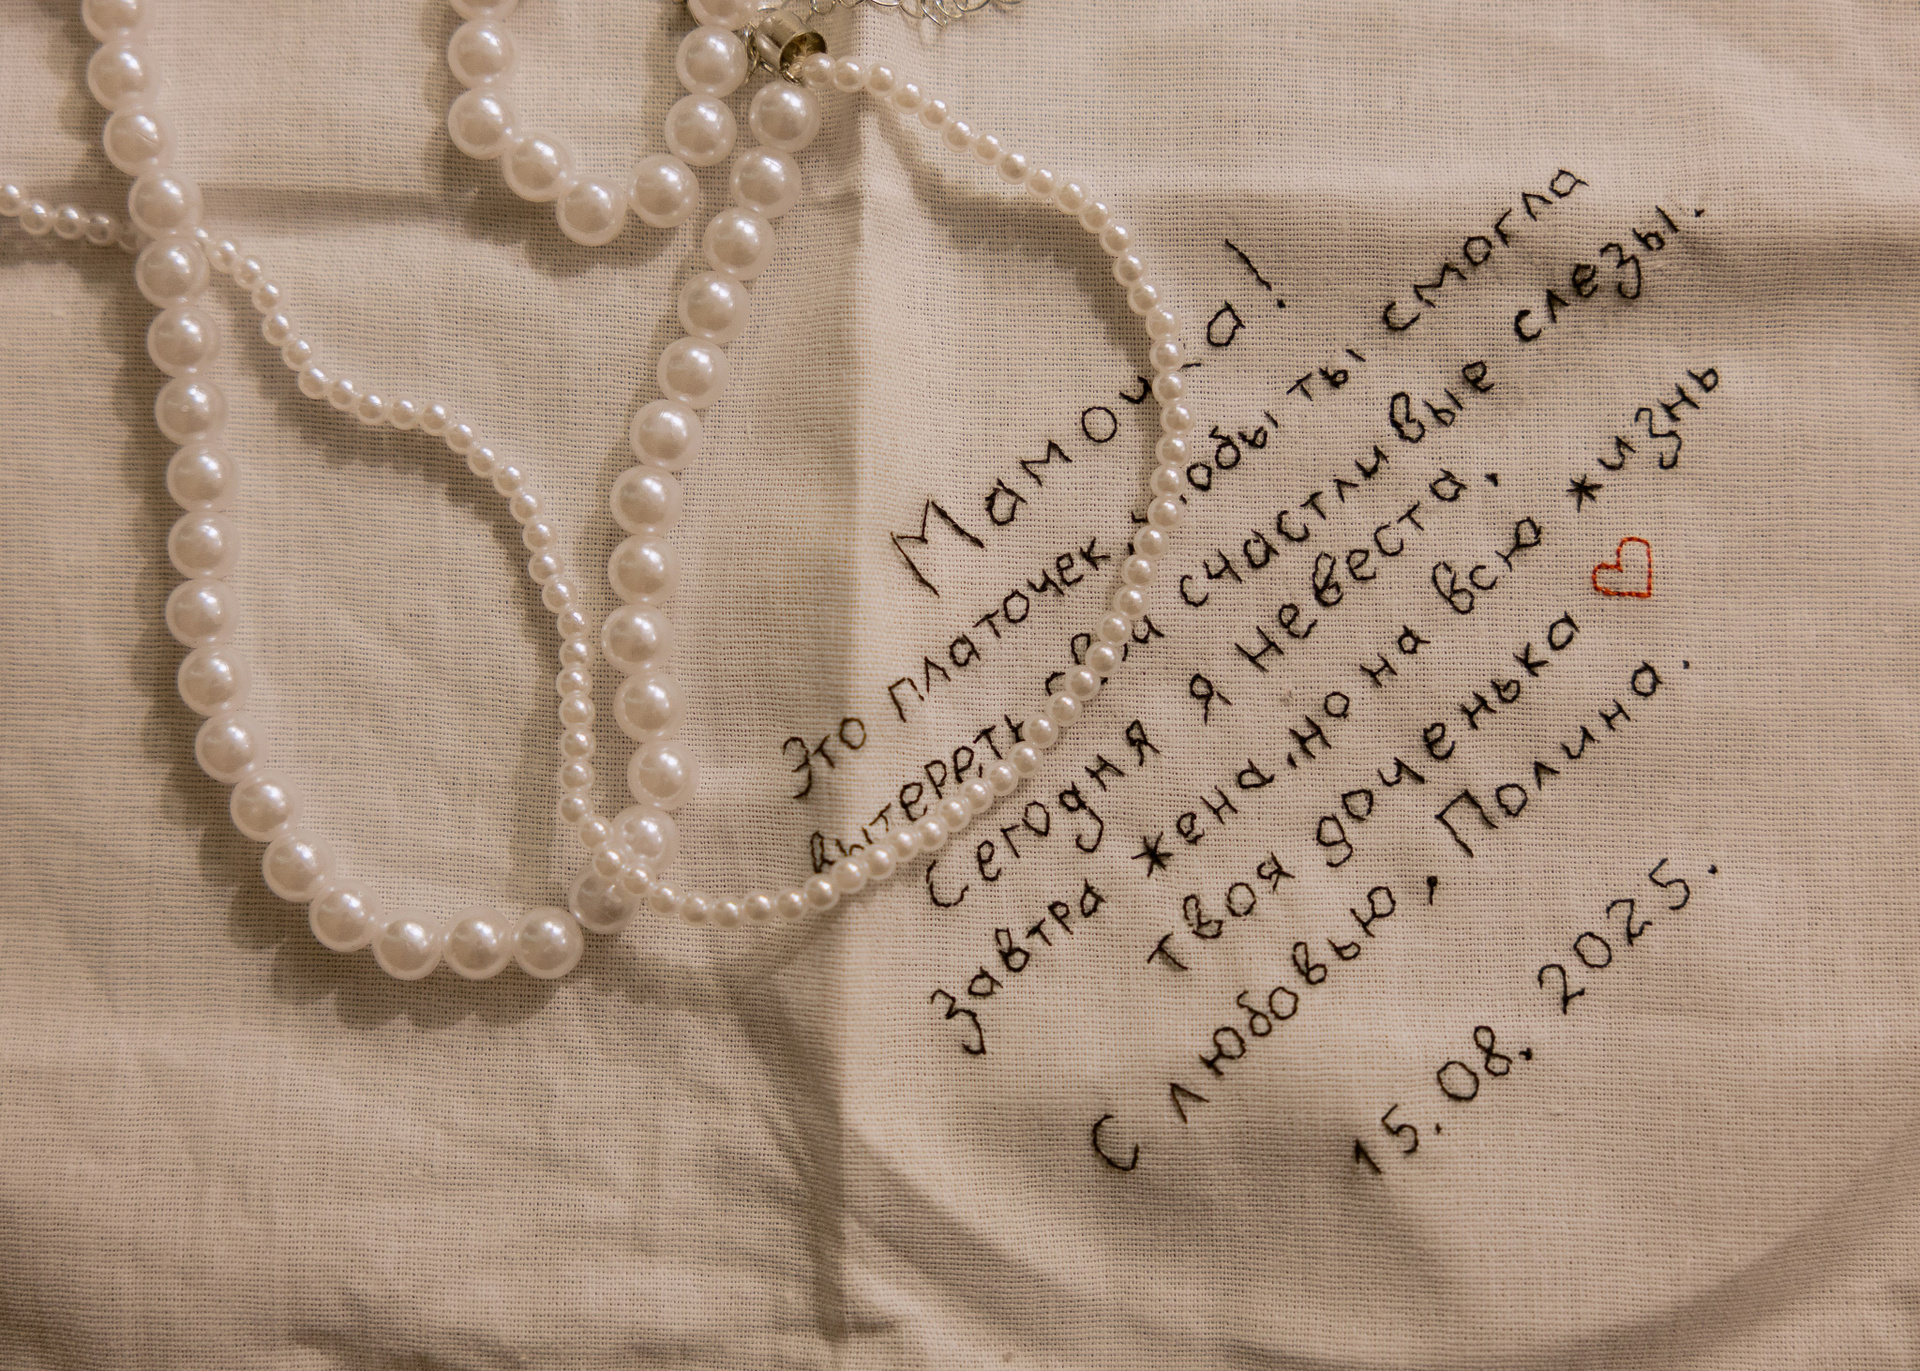 Мамочка!
Это платочек, чтобы ты смогла
вытереть свои счастливые слезы.
Сегодня я невеста,
завтра жена, но на всю жизнь
твоя доченька
С любовью, Полина.
15.08.2025.